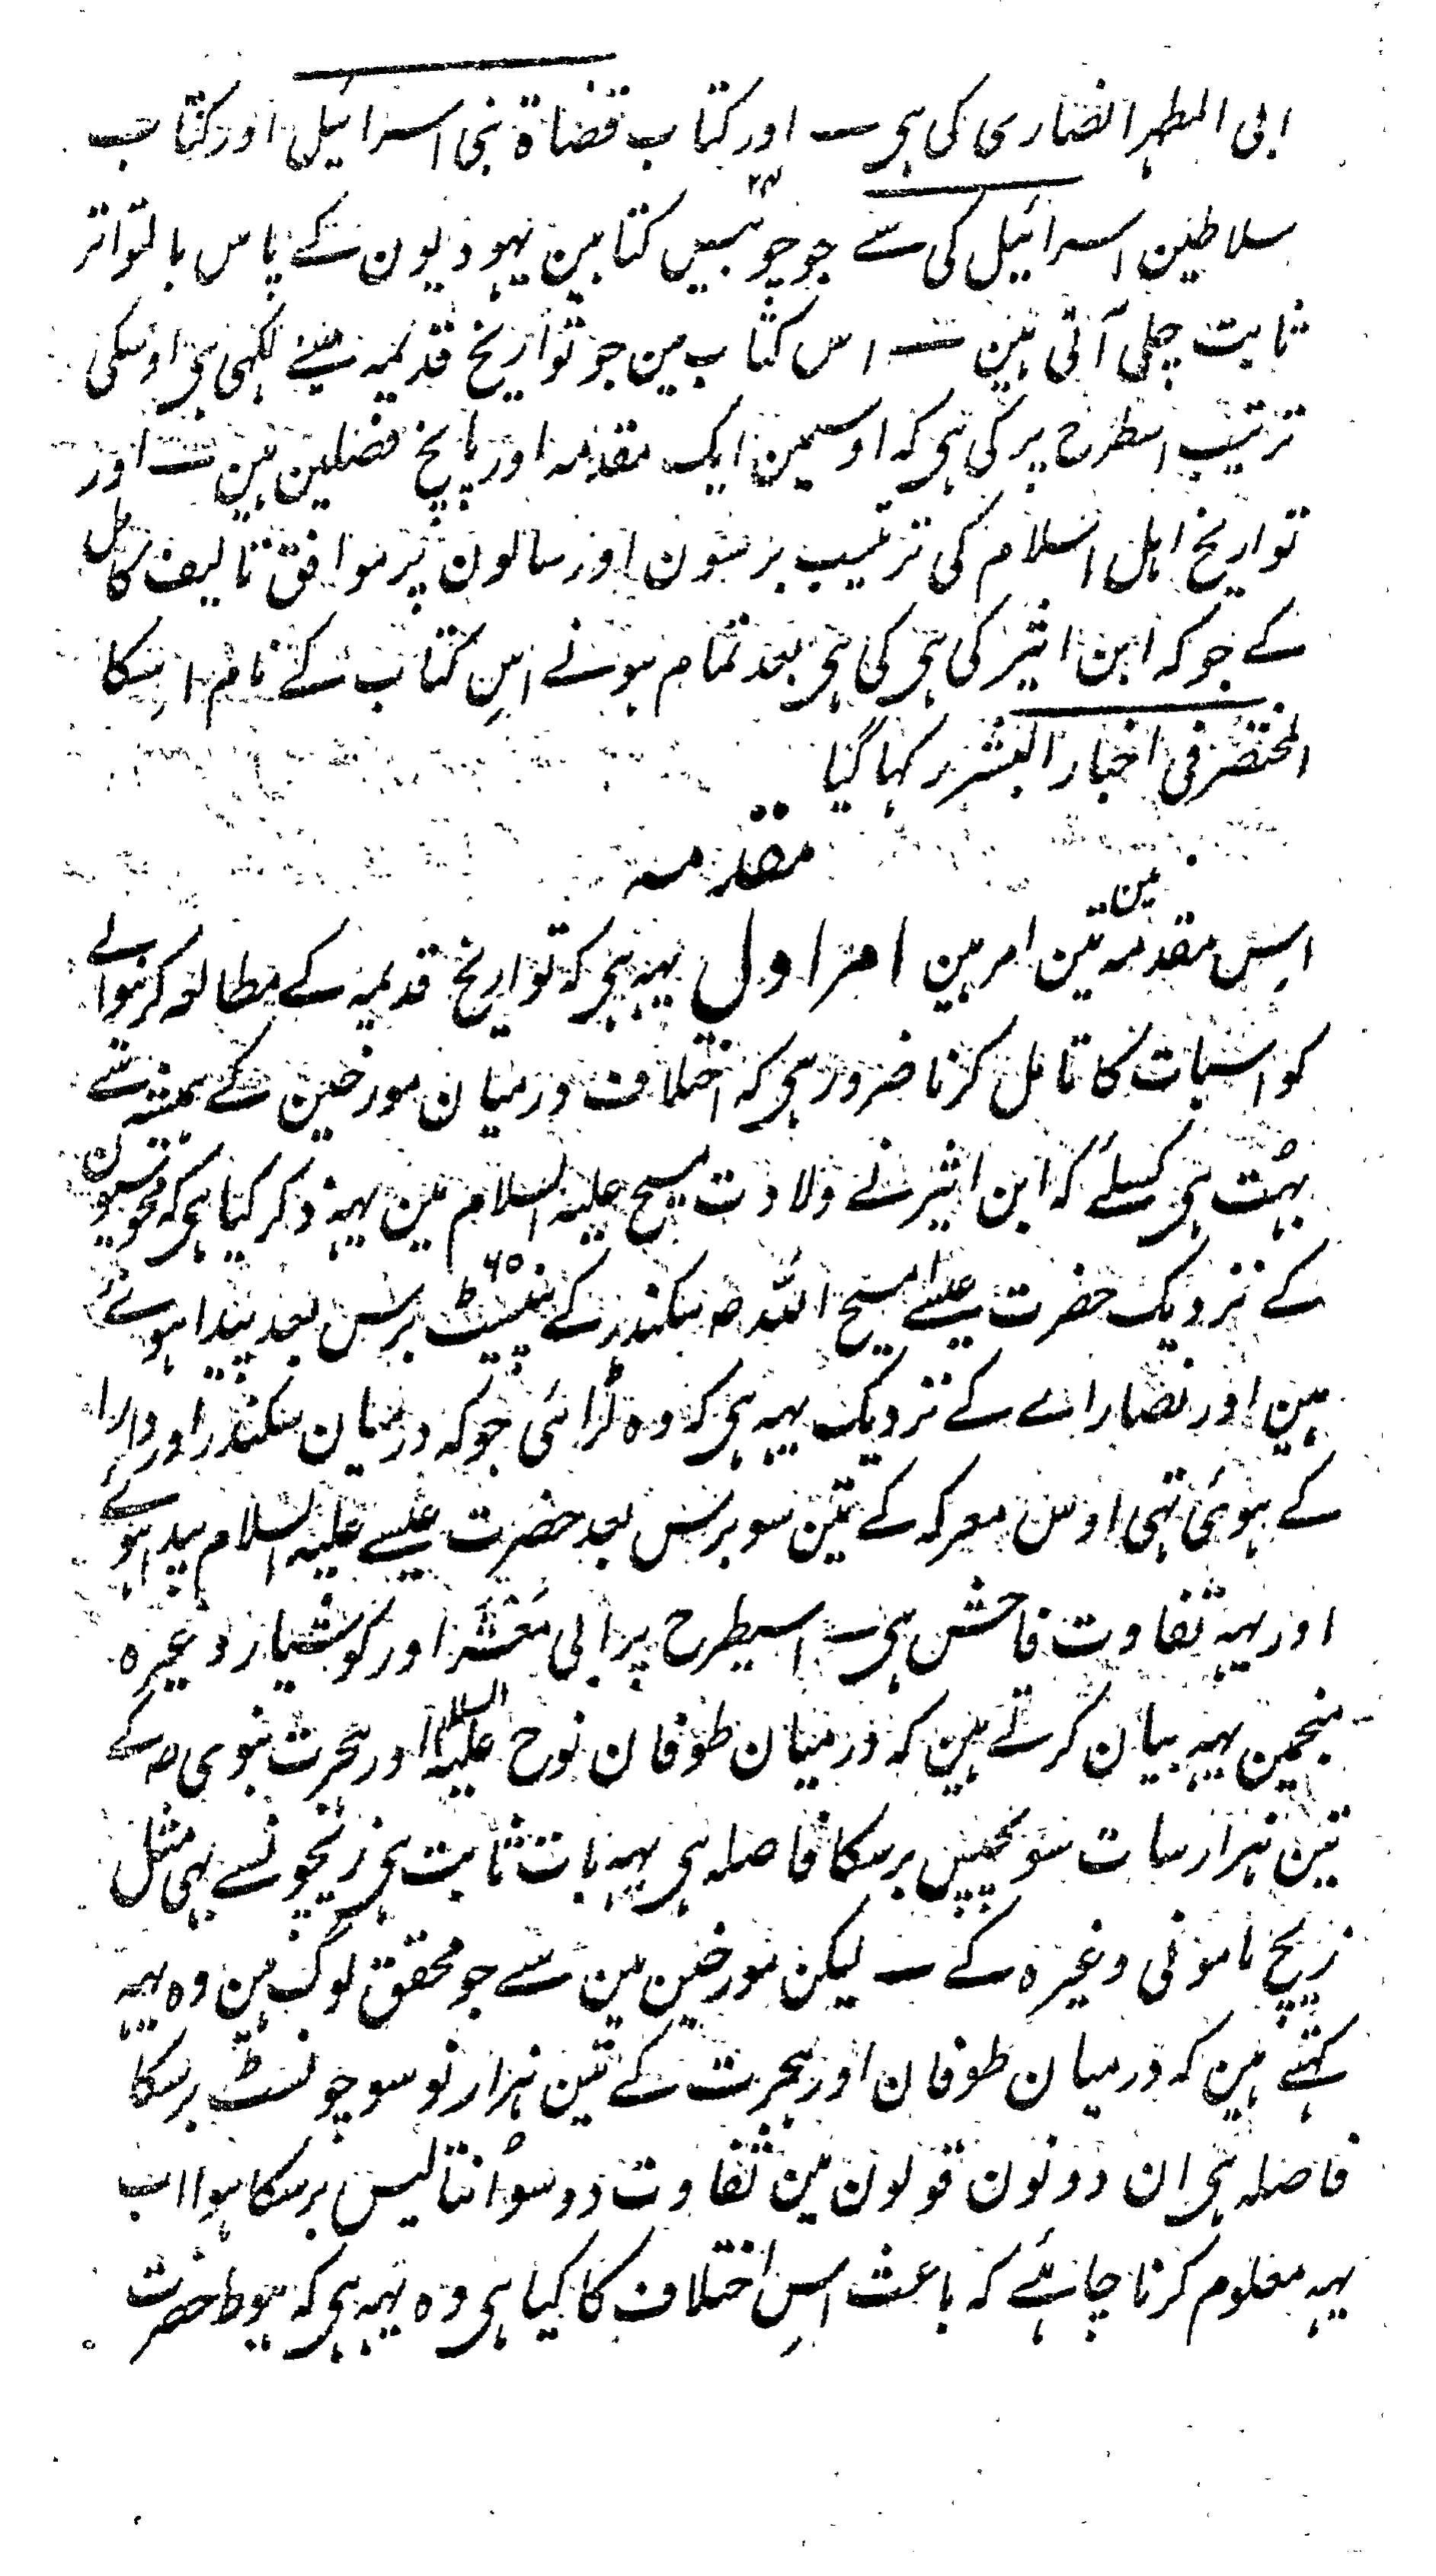 ابی المطہر انصاری کی ہی ـ اور کتاب قضاۃ بنی اسرائیل اور کتاب
سلاطین اسرائیل کی سے جو چوبیس ۲۴ کتابین یہودیون کے پاس بالتواتر
ثابت چلی آتی ہین ـ اس کتاب مین جو تواریخ قدیمہ مینے لکہی ہی اوسکی
ترتیب اسطرح پر کی ہی کہ اوسمین ایک مقدمہ اور پانچ فصلین ہین ـ اور
تواریخ اہل اسلام کی ترتیب برسون اور سالون پر موافق تالیف کامل
کے جو کہ ابن اثیر کی ہی کی ہی بعد تمام ہونے اس کتاب کے نام اسکا
المختصر فی اخبار البشر رکہا گیا
مقدمہ
اس مقدمہ مین تین امر ہین امر اول یہہ ہی کہ تواریخ قدیمہ کے مطالعہ کرنیوالے
کو اسبات کا تامل کرنا ضرور ہی کہ اختلاف درمیان مورخین کے ہمیشہ سے
بہت ہی کسلئے کہ ابن اثیر نے ولادت مسیح علیہ السلام مین یہہ ذکر کیا ہی کہ مجوسیون
کے نزدیک حضرت عیسے مسیح اللہ ص سکندر کے پینسٹ ۶۵ برس بعد پیدا ہوئے
ہین اور نصارے کے نزدیک یہہ ہی کہ وہ لڑائی جو کہ درمیان سکندر اور دارا
کے ہوئی تہی اوس معرکہ کے تین سو برس بعد حضرت عیسے علیہ السلام پیدا ہوئے
اور یہہ تفاوت فاحش ہی ـ اسیطرح پر ابی معشر اور کوشیار وغیرہ
منجمین یہہ بیان کرتے ہین کہ درمیان طوفان نوح علیہ السلام اور ہجرت نبوی ص کے
تین ہزار سات سو پچیس برسکا فاصلہ ہی یہہ بات ثابت ہی زیجونسے بہی مثل
زیج مامونی وغیرہ کے ـ لیکن مورخین مین سے جو محقق لوگ ہین وہ یہہ
کہتے ہین کہ درمیان طوفان اور ہجرت کے تین ہزار نو سو چونسٹ برسکا
فاصلہ ہی ان دونون قولون مین تفاوت دو سو اُنتالیس برسکا ہوا اب
یہہ معلوم کرنا چاہئے کہ باعث اس اختلاف کا کیا ہی وہ یہہ ہی کہ ہبوط حضرت